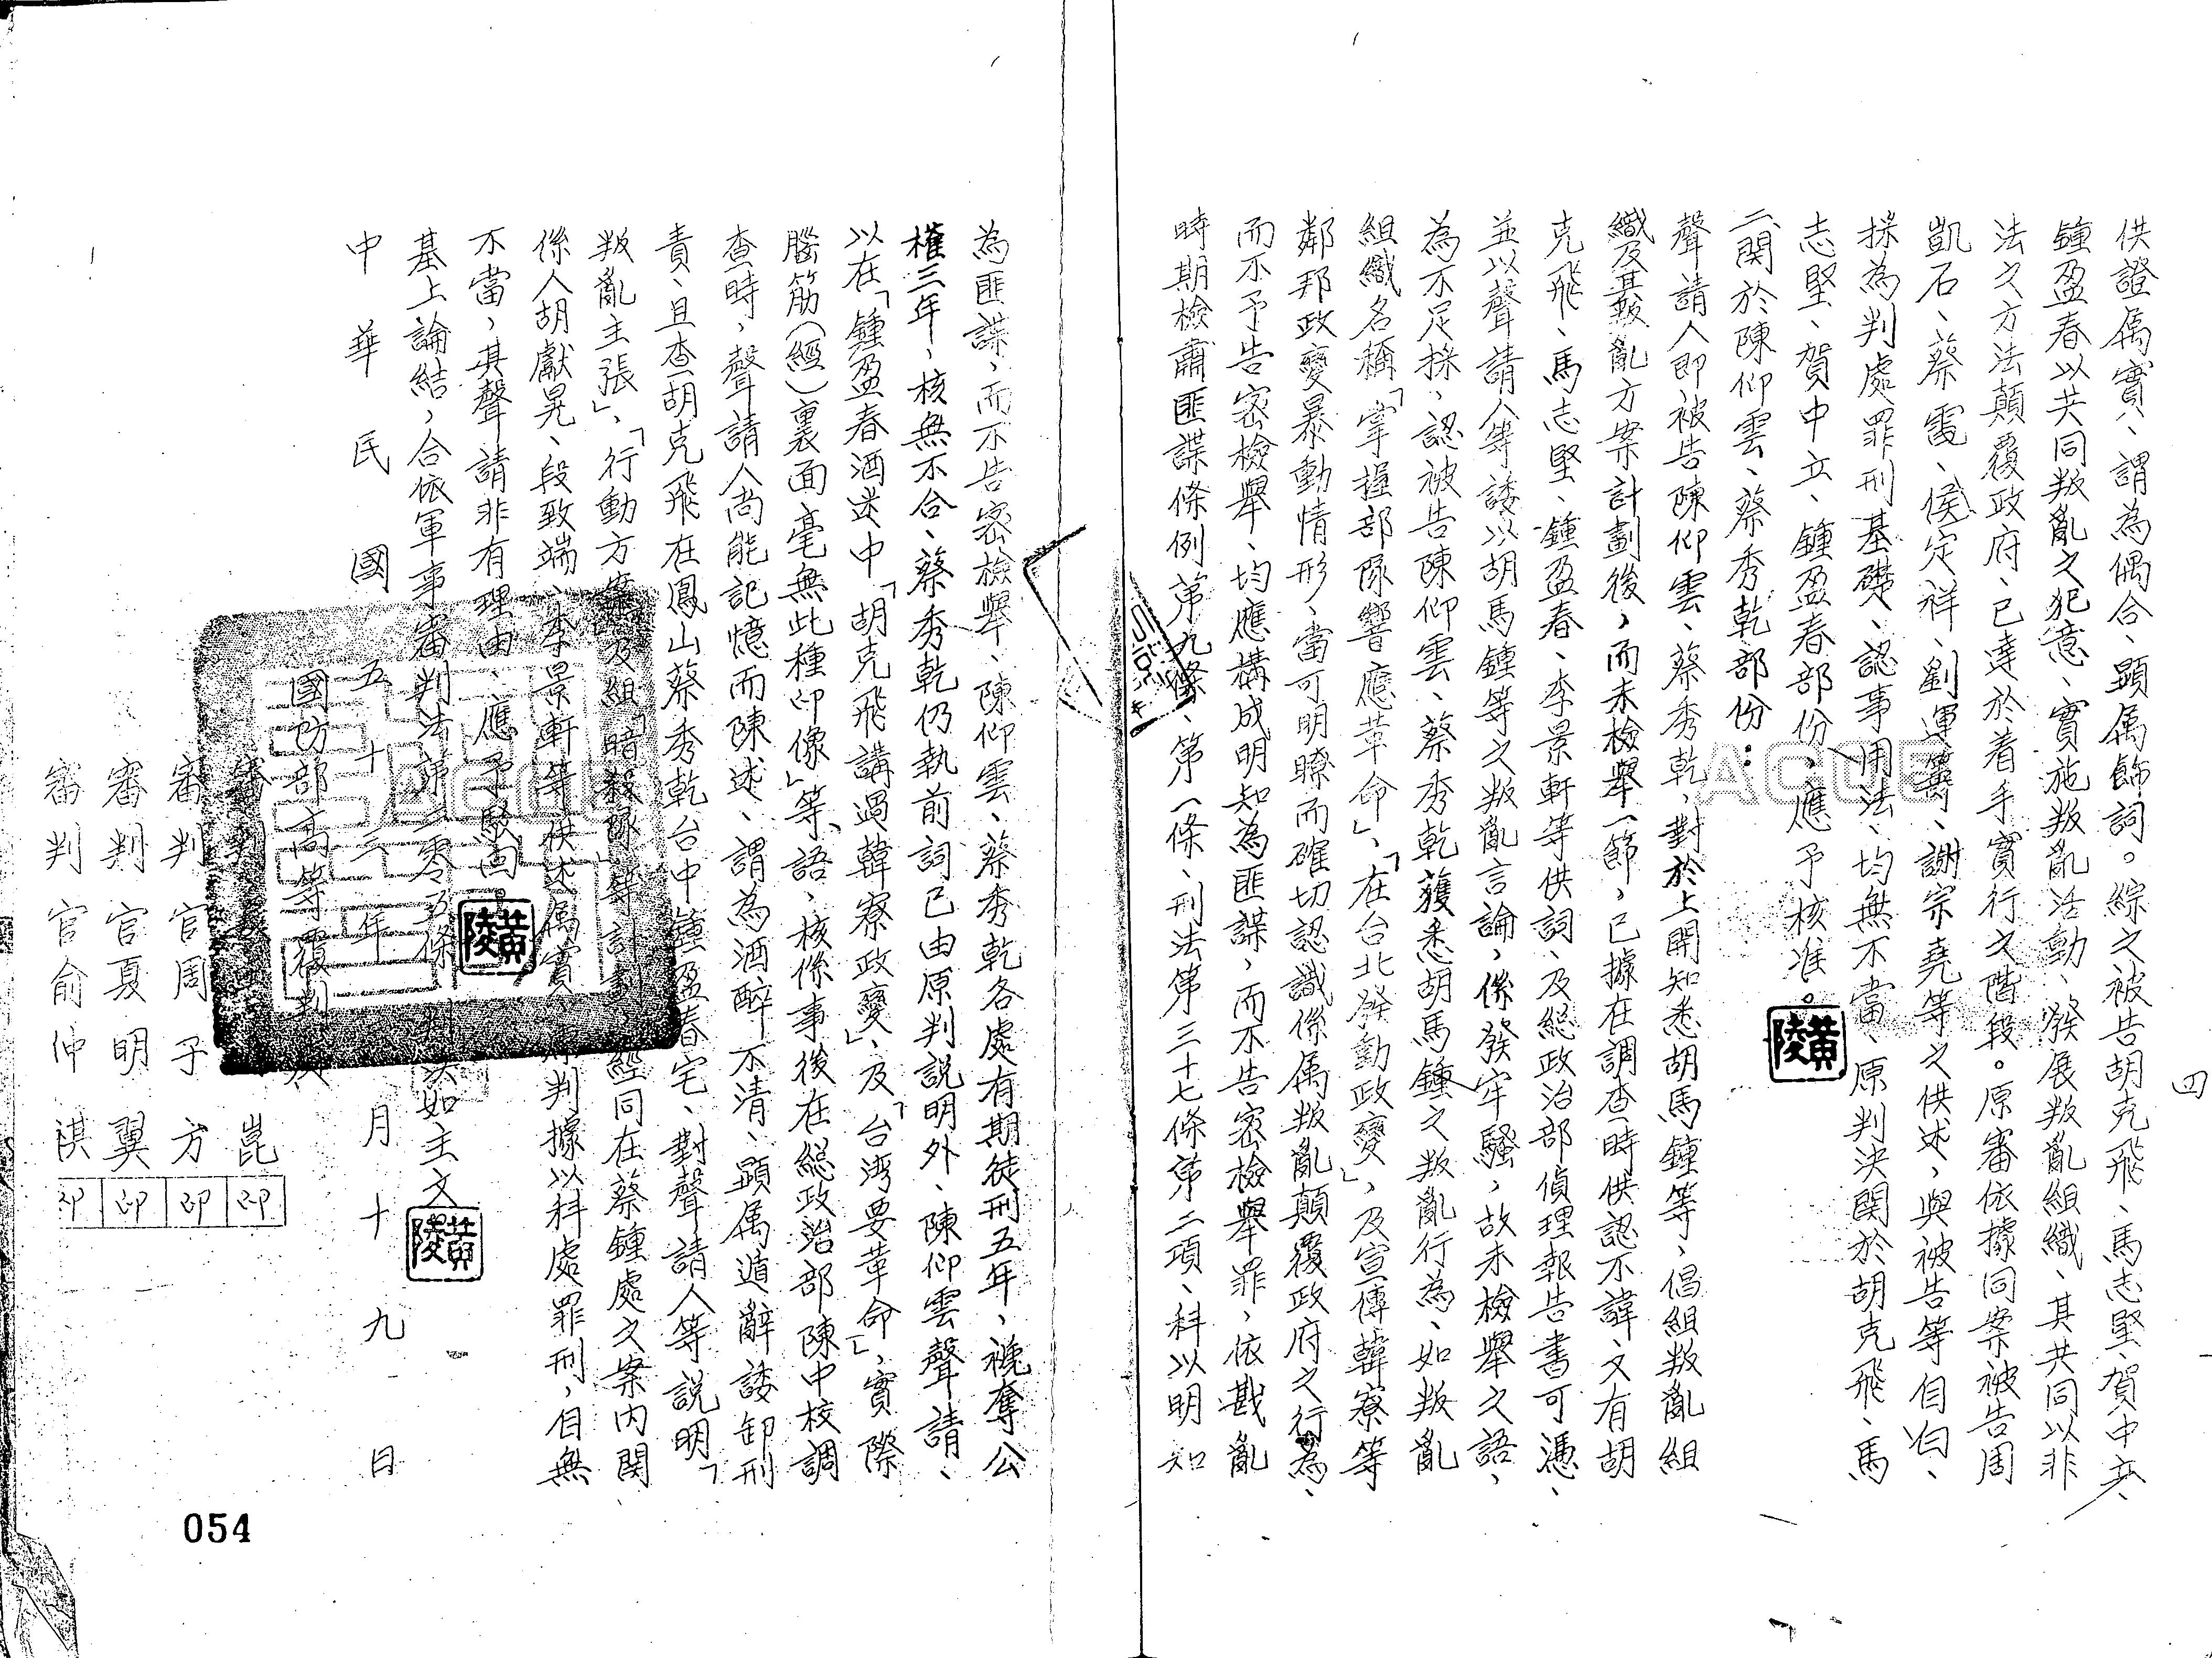 四
供證属實、謂為偶合、顯属飾詞。綜之被告胡克飛、馬志堅、賀中立、
鍾盈春以共同叛亂之犯意、實施叛亂活動、發展叛亂組織、其共同以非
法之方法顛覆政府、已達於着手實行之階段。原審依據同案被告周
凱石、蔡霞、侯定祥、劉運籌、謝宗堯等之供述，與被告等自白、
採為判處罪刑基礎、認事用法、均無不當、原判決関於胡克飛、馬
志堅、賀中立、鍾盈春部份、應予核准。
二関於陳仰雲、蔡秀乾部份：
聲請人即被告陳仰雲、蔡秀乾，對於上開知悉胡馬鍾等、倡組叛亂組
織及其叛亂方案計劃後，而未檢舉一節，已據在調查時供認不諱、又有胡
克飛、馬志堅、鍾盈春、李景軒等供詞、及総政治部偵理報告書可憑、
並以聲請人等諉以胡馬鍾等之叛亂言論，係發牢騷，故未檢舉之語、
為不足採、認被告陳仰雲、蔡秀乾獲悉胡馬鍾之叛亂行為、如叛亂
組織名稱「掌握部隊響應革命」、「在台北發動政變」，及宣傳韓寮等
鄰邦政變暴動情形、當可明瞭而確切認識係属叛亂顛覆政府之行為、
而不予告密檢舉、均應構成明知為匪諜，而不告密檢舉罪，依戡亂
時期檢肅匪諜條例第九條、第一條、刑法第三十七條第二項、科以明知
為匪諜，而不告密檢舉、陳仰雲、蔡秀乾各處有期徒刑五年，褫奪公
權三年、核無不合、蔡秀乾仍執前詞已由原判説明外、陳仰雲聲請、
以在「鍾盈春酒送中「胡克飛講過韓寮政變」、及「台湾要革命」、實際
腦筋（經）裏面毫無此種印像」等語、核係事後在総政治部陳中校調
查時，聲請人尚能記憶而陳述、謂為酒醉不清、顯属遁辭諉卸刑
責、且查胡克飛在鳳山蔡秀乾台中鍾盈春宅、對聲請人等説明、「
叛亂主張」、「行動方案及組「暗殺隊」等計劃、經同在蔡鍾處之案内関
係人胡獻晃、段致端、李景軒等供述属實、原判據以科處罪刑，自無
不當，其聲請非有理由、應予駁回。
基上論結，合依軍事審判法第二零五條、判決如主文。
中華民國五十三年月十九日
國防部高等覆判庭
審判長崑
審判官周子方
審判官夏明翼
審判官俞仲祺
印
印
印
印
黃陵
黃陵
黃陵
054